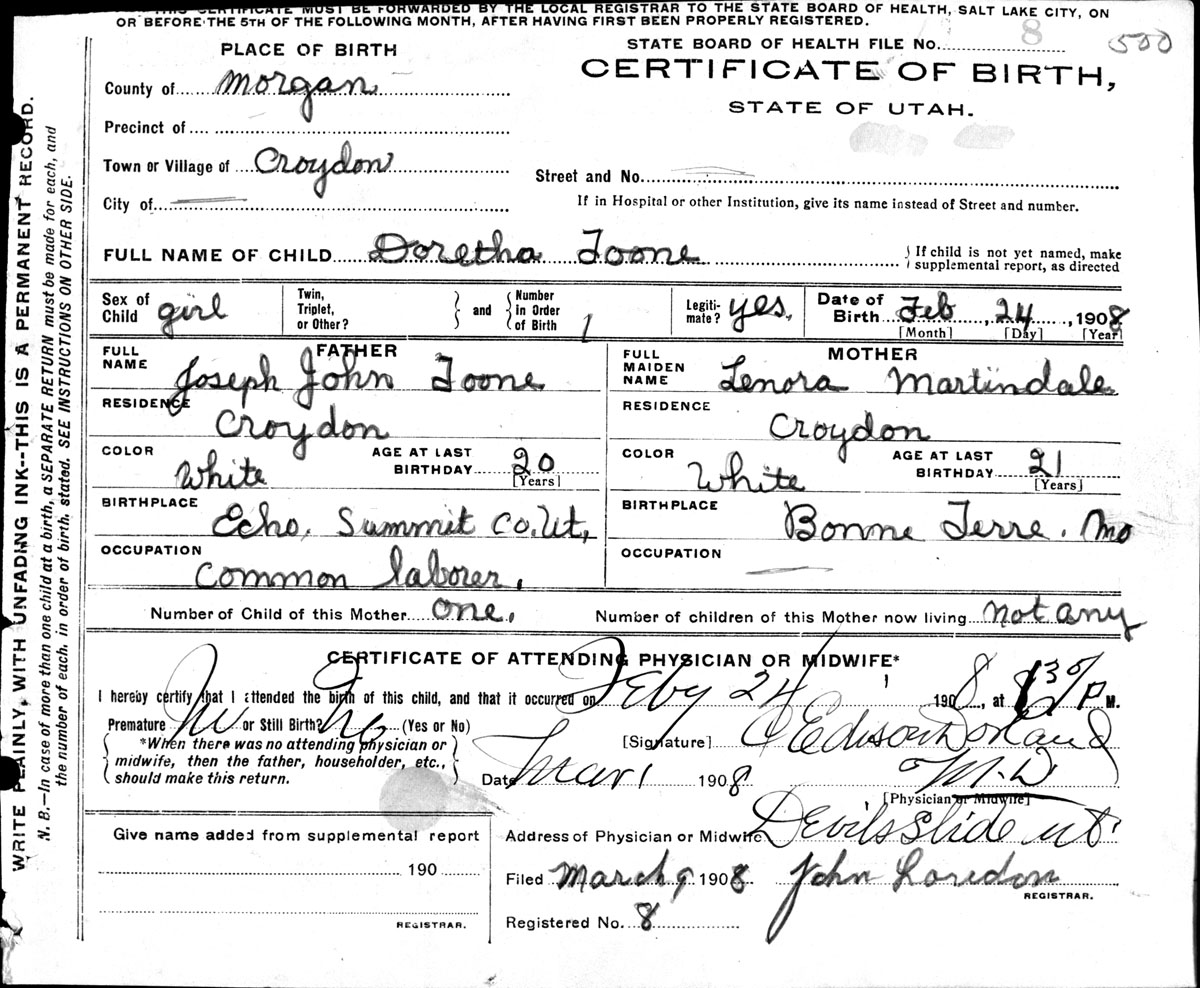 THIS CERTIFICATE MUST BE FORWARDED BY THE LOCAL REGISTRAR TO THE STATE BOARD OF HEALTH, SALT LAKE CITY, ON
OR BEFORE THE 5TH OF THE FOLLOWING MONTH, AFTER HAVING FIRST BEEN PROPERLY REGISTERED.
PLACE OF BIRTH
STATE BOARD OF HEALTH FILE NO. 8 500
County of Morgan
CERTIFICATE OF BIRTH,
STATE OF UTAH.
Precinct of
Town or Village of Croydon
Street and No.
City of
If in Hospital or other Institution, give its name instead of Street and number.
FULL NAME OF CHILD Doretha Toone
If child is not yet named, make
supplemental report, as directed
Sex of Child girl
Twin, Triplet, or Other?
and
Number in Order of Birth 1
Legiti-mate? yes.
Date of Birth Feb, 24, 1908
[Month] [Day] [Year]
FATHER
FULL NAME Joseph John Toone
RESIDENCE
Croydon
COLOR White
AGE AT LAST BIRTHDAY 20
[Years]
BIRTHPLACE
Echo, Summit Co. Ut,
OCCUPATION
Common laborer.
MOTHER
FULL MAIDEN NAME Lenora Martindale
RESIDENCE
Croydon
COLOR White
AGE AT LAST BIRTHDAY 21
[Years]
BIRTHPLACE
Bonne Terre. Mo
OCCUPATION
Number of Child of this Mother one.
Number of children of this Mother now living not any
CERTIFICATE OF ATTENDING PHYSICIAN OR MIDWIFE*
I hereby certify that I attended the birth of this child, and that it occurred on Feby 24, 1908, at P M.
Premature No or Still Birth? No (Yes or No)
*When there was no attending physician or
midwife, then the father, householder, etc.,
should make this return.
[Signature]
M.D
[Physician or Midwife]
Date Mar 1 1908
Address of Physician or Midwife Devils Slide Ut
Give name added from supplemental report
190
REGISTRAR.
Filed March 9 1908 John
REGISTRAR.
Registered No. 8
WRITE PLAINLY, WITH UNFADING INK--THIS IS A PERMANENT RECORD.
N. B.--In case of more than one child at a birth, a SEPARATE RETURN must be made for each, and
the number of each, in order of birth, stated. SEE INSTRUCTIONS ON OTHER SIDE.